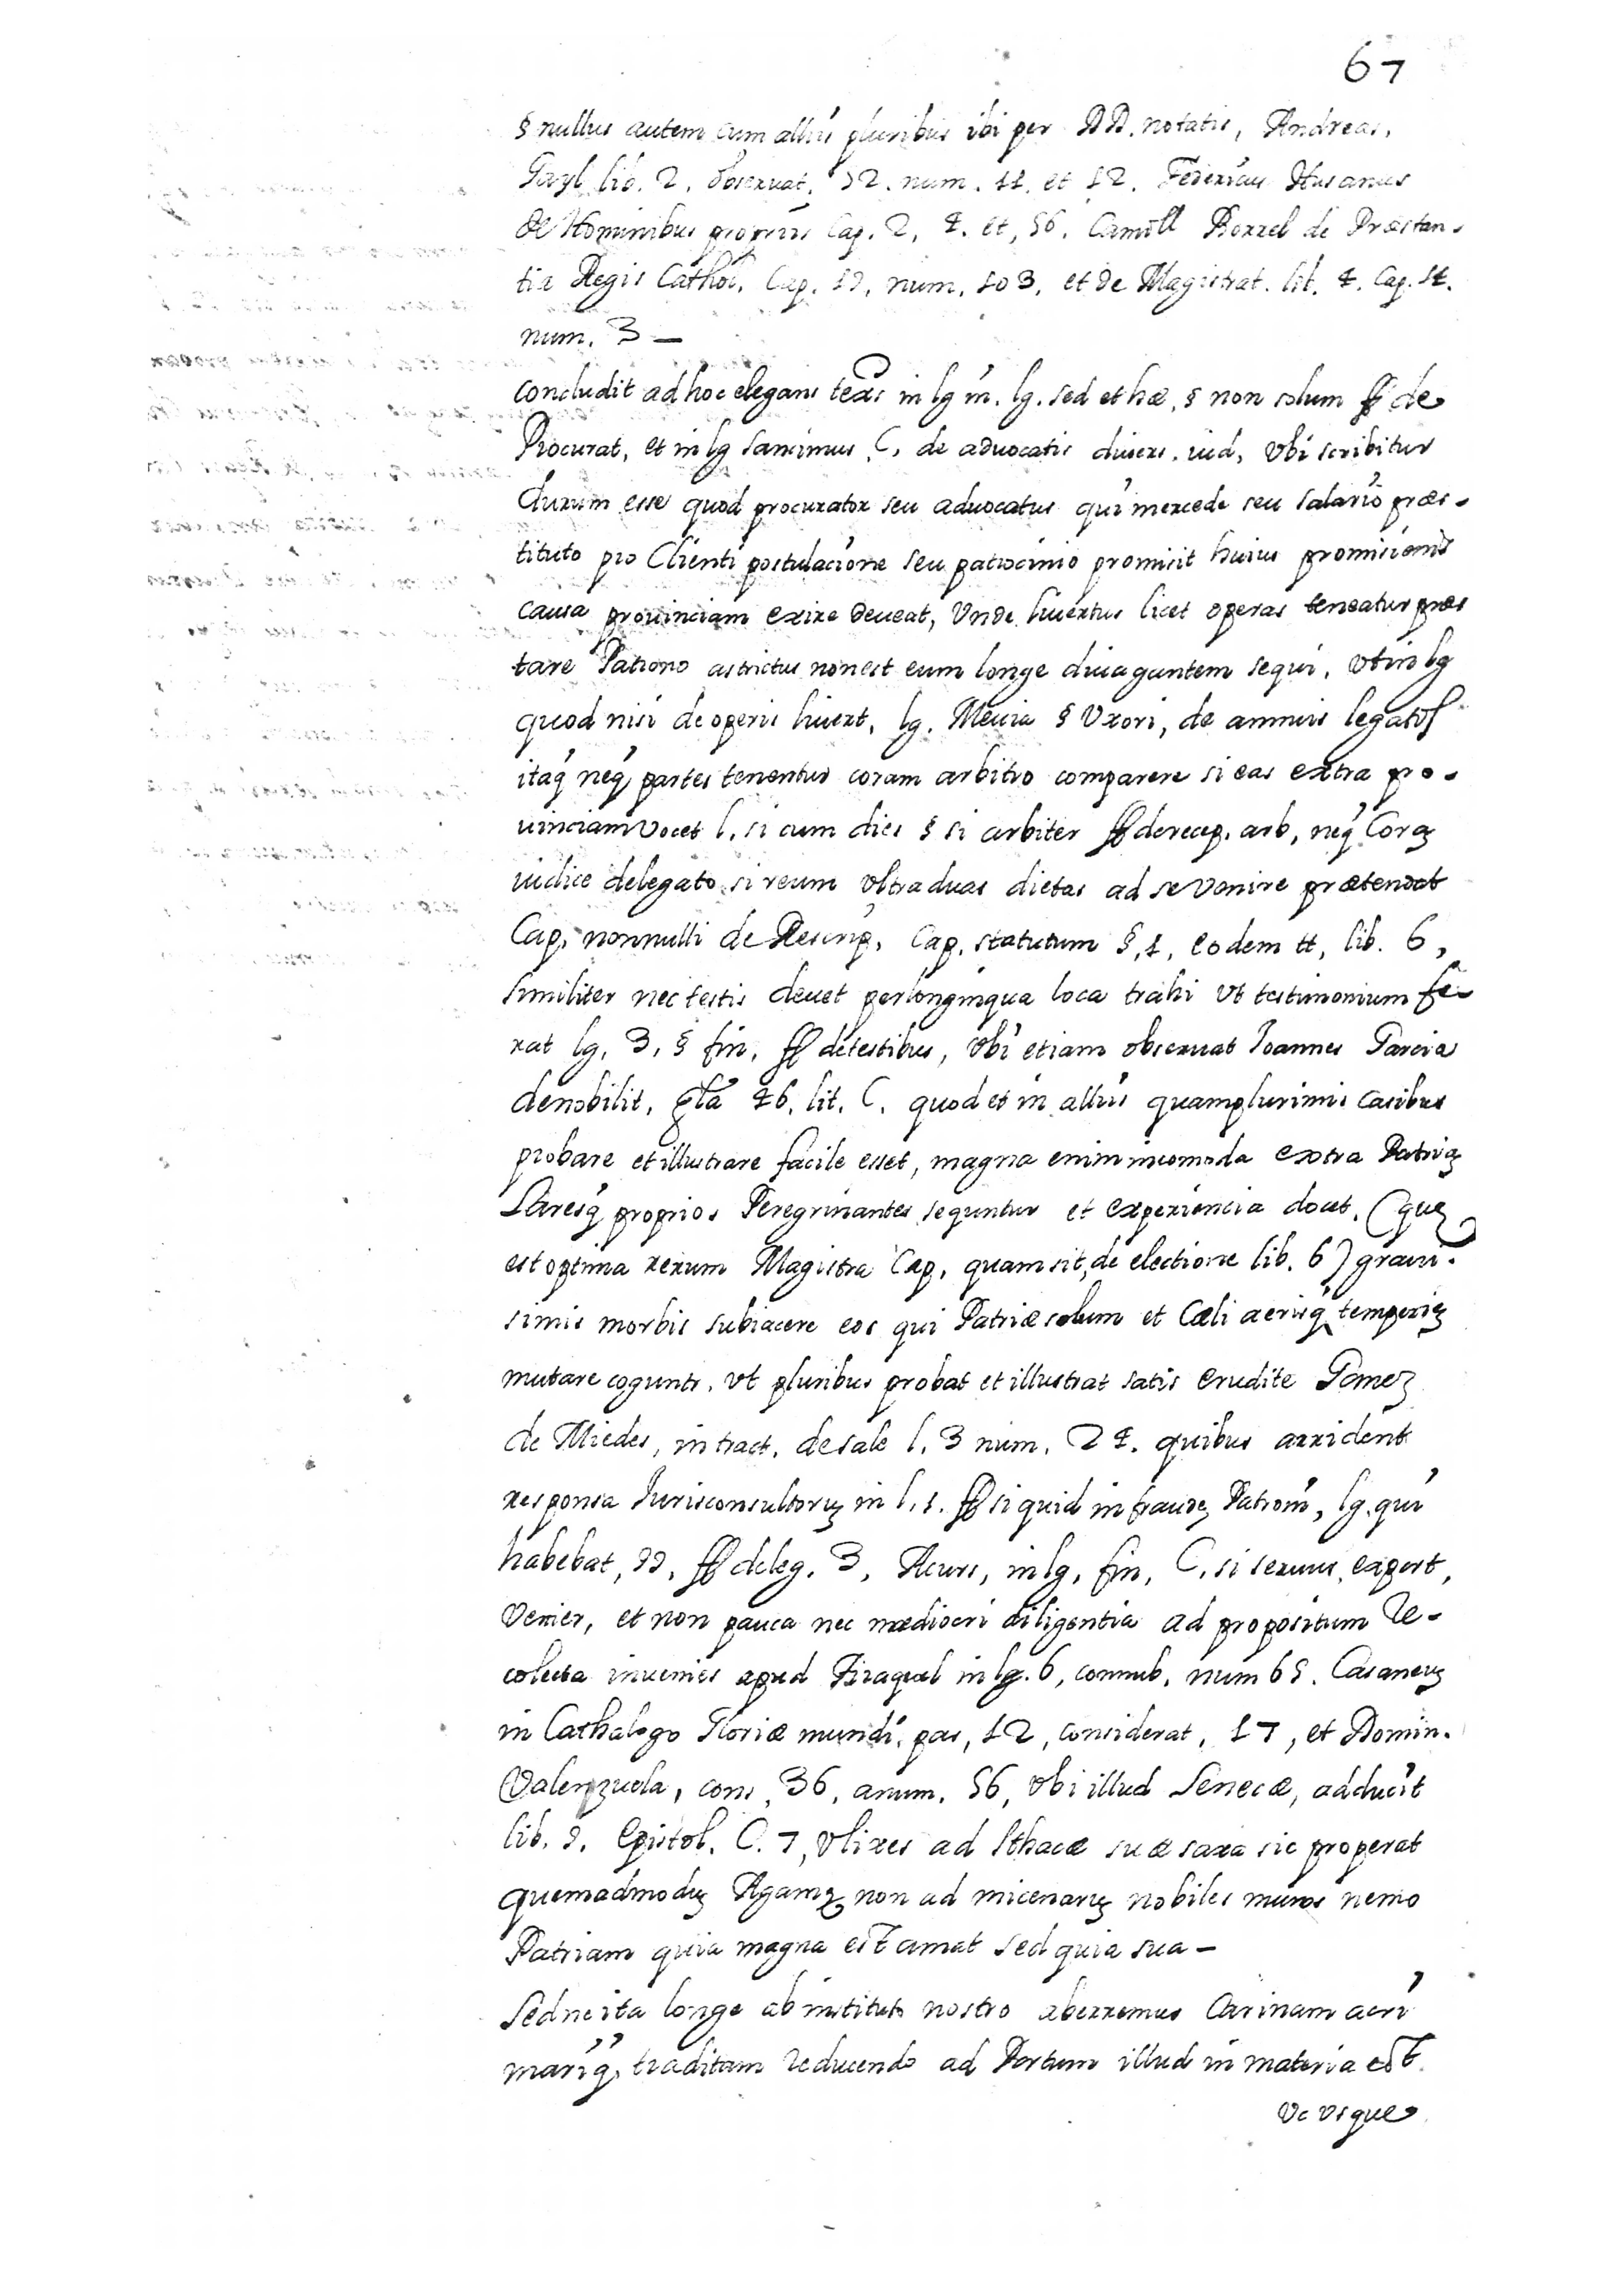 67
§ nullus autem cum alliis pluribus ibi per DD. notatis, Andreas,
Gayl lib. 2. obseruat. 52. num. 11. et 12. Federicus Husanus
de Hominibus propriis Cap. 2, 4. et, 56. Camill Borrel de Præstan-
tia Regis Cathol. Cap. 59, num. 103, et de Magistrat. lib. 4. Cap. 14.
num. 3 —
concludit ad hoc elegans texs in lg in. lg. sed et hæ, § non solum ff de
Procurat, et in lg sancimus C, de aduocatis diuers. iud, Vbi scribitur
durum esse quod procurator seu aduocatus qui mercede seu salario præs-
tituto pro Clienti postulacione seu patrocinio promisit huius promisionis
causa prouinciam exire deueat, Vnde liuertus licet operas teneatur præs
tare Patrono astrictus non est eum longe diuaguntem sequi, vt in lg
quod nisi de operis liuert, lg. Meuia § Vxori, de annuis legatis
itaq neq partes tenentur coram arbitro comparere si eas extra pro-
uinciam vocet l, si cum dies § si arbiter ff de recep. arb, neq Corã
iudice delegato si reum vltra duas dietas ad se venire prætendat
Cap, nonnulli de Rescrip, Cap, statutum §, 1, eodem tt, lib. 6,
similiter nec testis deuet per longinqua loca trahi vt testimonium fe-
rat lg, 3, § fin, ff de testibus, Vbi etiam obseruat Ioannes Garcia
de nobilit, gla 46. lit. C. quod et in alliis quamplurimis casibus
probare et illustrare facile esset, magna enim incomoda extra Patriã
Laresq proprios Peregrinantes sequntur et experiencia docet. (quę
est optima rerum Magistra Cap, quam sit, de electione lib. 6) graui-
simis morbis subiacere eos qui Patriæ solum et Cæli aerisq temperiẽ
mutare coguntr. vt pluribus probat et illustrat satis erudite Gomez
de Miedes, in tract. de sale l. 3 num. 24. quibus arrident
responsa Iurisconsultorũ in l. 1. ff si quid in fraudẽ Patroni, lg. qui
habebat, 99, ff de leg. 3, Acurs, in lg, fin, C, si seruus, export,
Venier, et non pauca nec mediocri diligentia ad propositum re-
colecta inuenies apud Tiraquel in lg. 6, connub. num 65. Casaneus
in Cathalogo Gloriæ mundi. par, 12, considerat, 17, et Domin.
Valenzuela, cons, 36, anum. 56, vbi illud Senecæ, adducit
lib. 9. Epistol. C. 7, Vlixes ad Ithacæ suæ saxa sic properat
quemadmodũ Agamẽ non ad micenarũ nobiles muros nemo
Patriam quia magna est amat sed quia sua —
Sed ne ita longe ab instituto nostro aberremus Carinam aeri
mariq, traditam reducendo ad Portum illud in materia est
Vc vsque